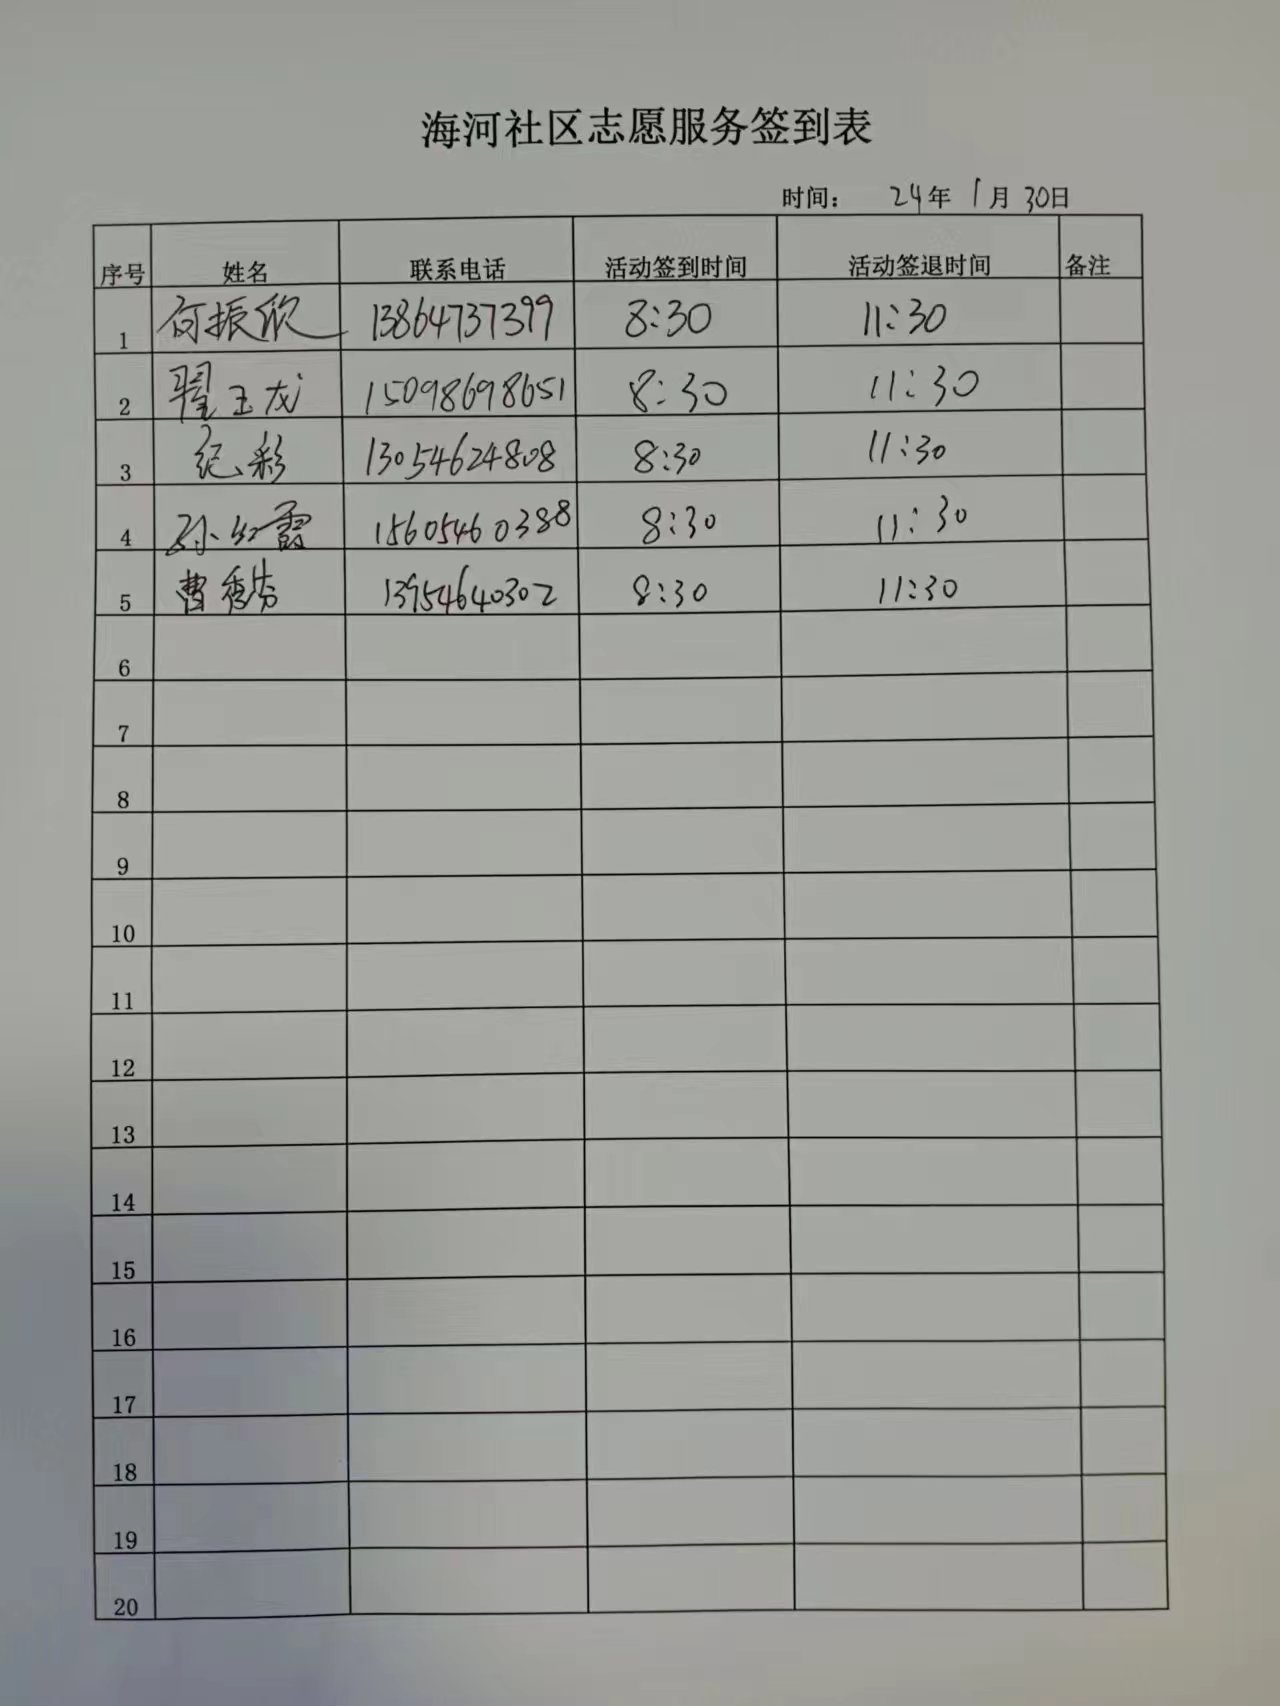 海河社区志愿服务签到表
时间： 24年 1月 30日
序号 姓名 联系电话 活动签到时间 活动签退时间 备注
1 何振欣 13864737399 8:30 11:30
2 翟玉龙 15098698651 8:30 11:30
3 纪彩 13054624808 8:30 11:30
4 孙红霞 15605460388 8:30 11:30
5 曹秀芬 13954640302 8:30 11:30
6
7
8
9
10
11
12
13
14
15
16
17
18
19
20